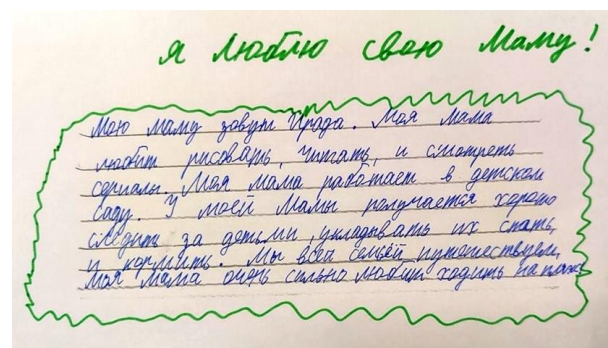 я люблю свою Маму!
Мою маму зовут Ирода. Моя мама
любит рисовать, читать, и смотреть
сериалы. Моя мама работает в детском
саду. У моей Мамы получается хорошо
следить за детьми, укладывать их спать,
и кормить. Мы всей семьёй путешествуем,
Моя мама очень сильно любит ходить на пляж